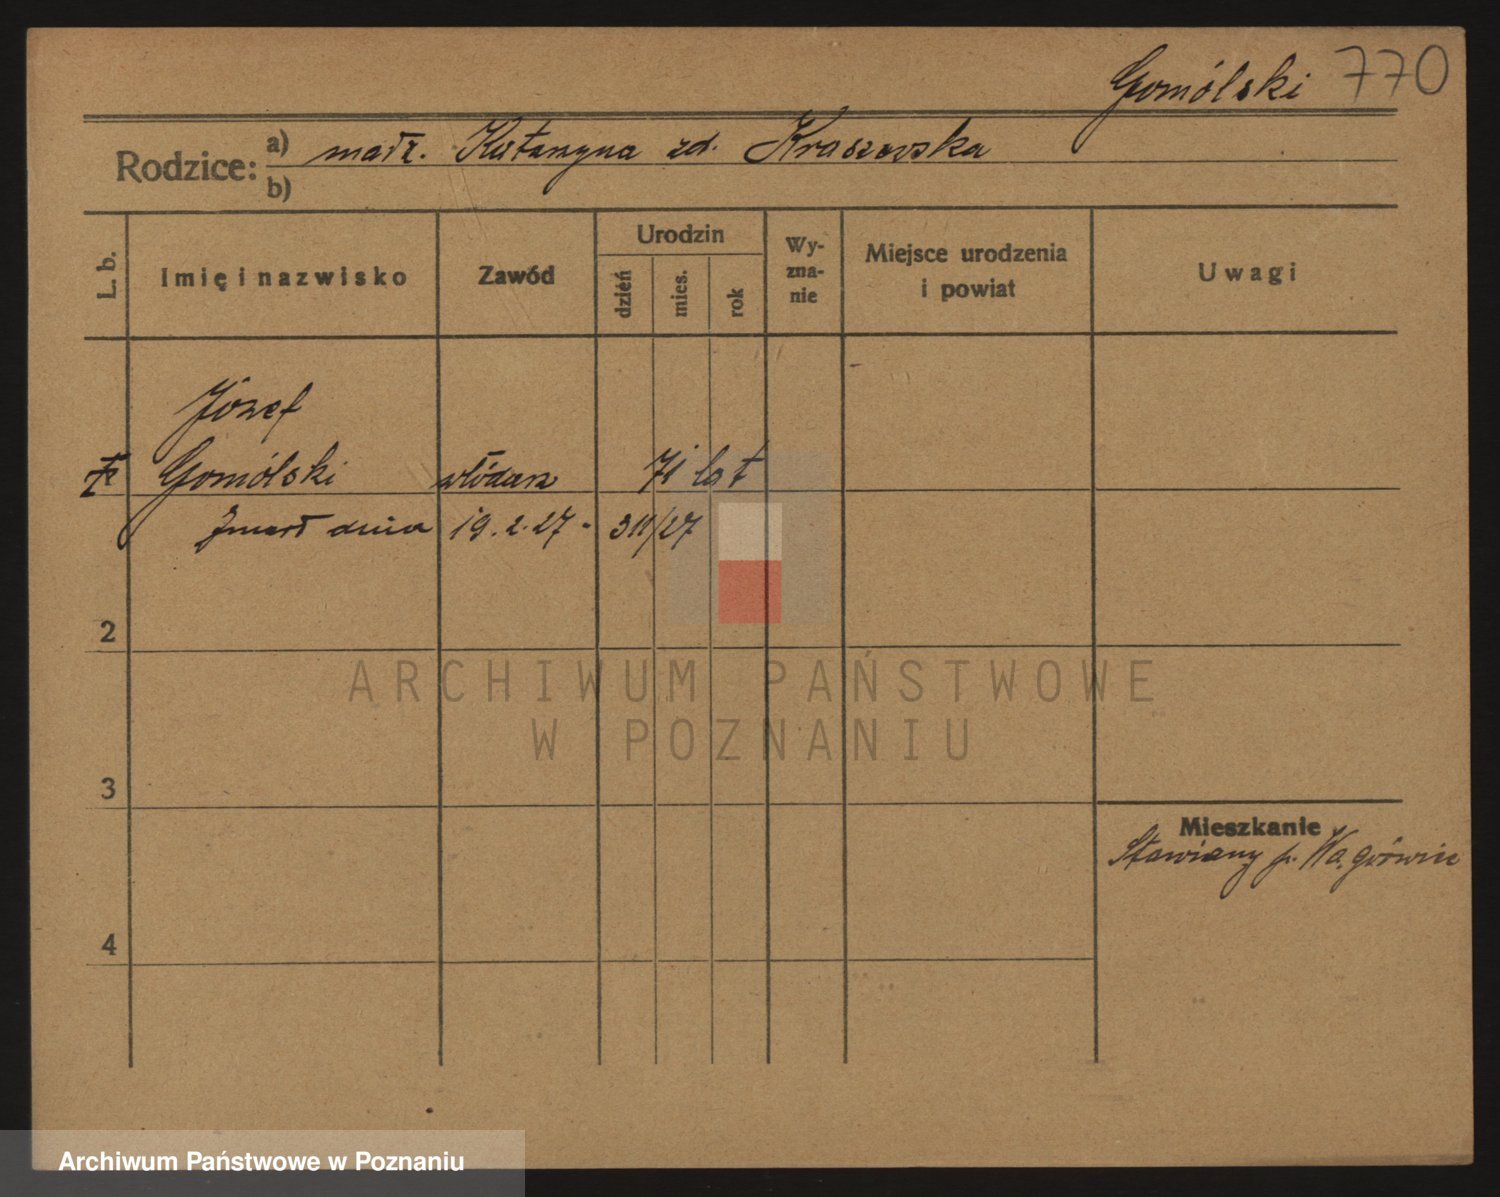 Gomólski 770
Rodzice: a) małż. Katarzyna zd. Kraszewska
b)
L. b.
Imię i nazwisko
Zawód
Urodzin
dzień
mies.
rok
Wy-
zna-
nie
Miejsce urodzenia
i powiat
Uwagi
Józef
Gomólski włódarz 71 lat
Zmarł dnia 19.2.27 - 311/27
2
3
4
Mieszkanie
Stawiany p. Wągrówiec
ARCHIWUM PAŃSTWOWE
W POZNANIU
Archiwum Państwowe w Poznaniu